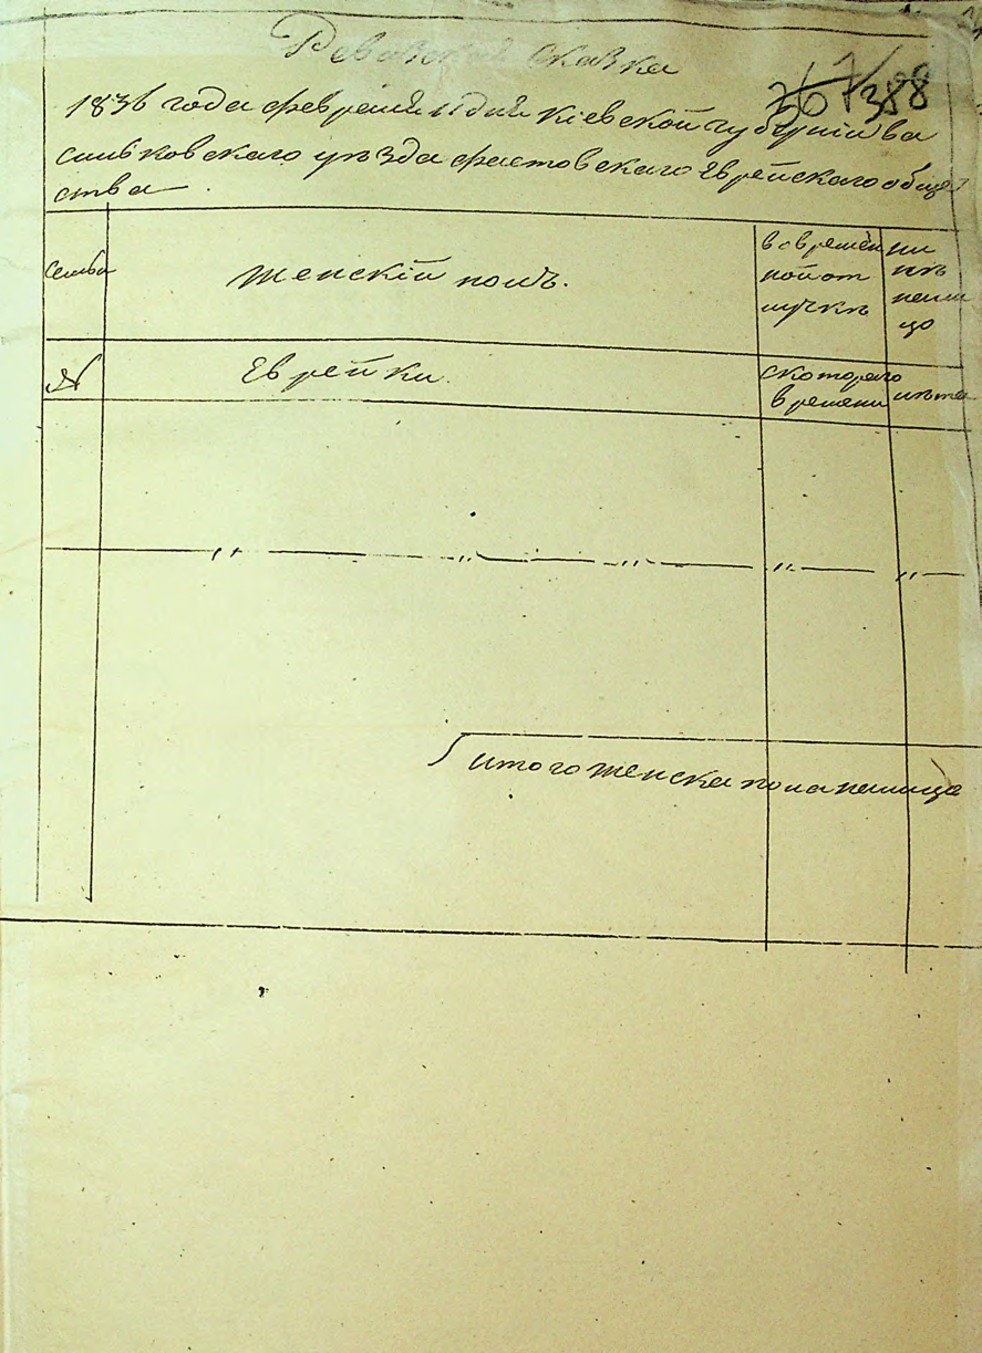 Ревизская сказка
367/388
1836 года февраля 11 дня Кіевской губерніи Ва
сильковскаго уѣзда Фастовскаго Еврейскаго общес
ства
семьи
Женскій полъ.
вовремен
ной от
лучкѣ
ли
цѣ
нали
цо
№
Еврейки.
скотораго
времени
лѣта
итого женска пола налицо